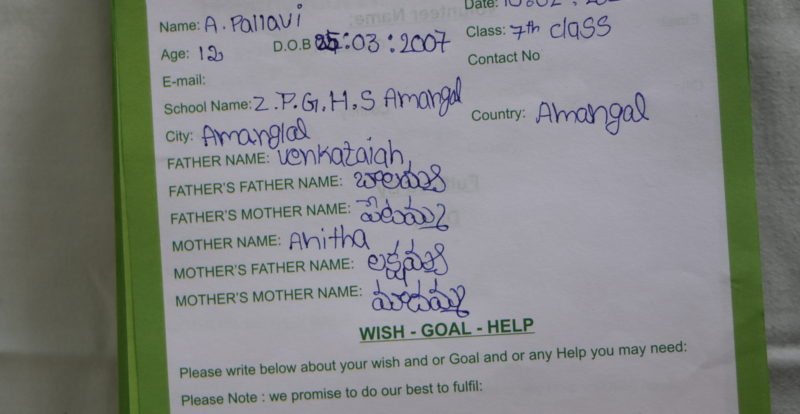 Name: A. Pallavi
Age: 12 D.O.B 25:03:2007 Class: 7th class
Contact No
E-mail:
School Name: Z.P.G.H.S Amangal
City: Amanglal Country: Amangal
FATHER NAME: Venkataiah
FATHER'S FATHER NAME: బాలయ్య
FATHER'S MOTHER NAME:
MOTHER NAME: Anitha
MOTHER'S FATHER NAME: లక్ష్మయ్య
MOTHER'S MOTHER NAME:
WISH - GOAL - HELP
Please write below about your wish and or Goal and or any Help you may need:
Please Note : we promise to do our best to fulfil: